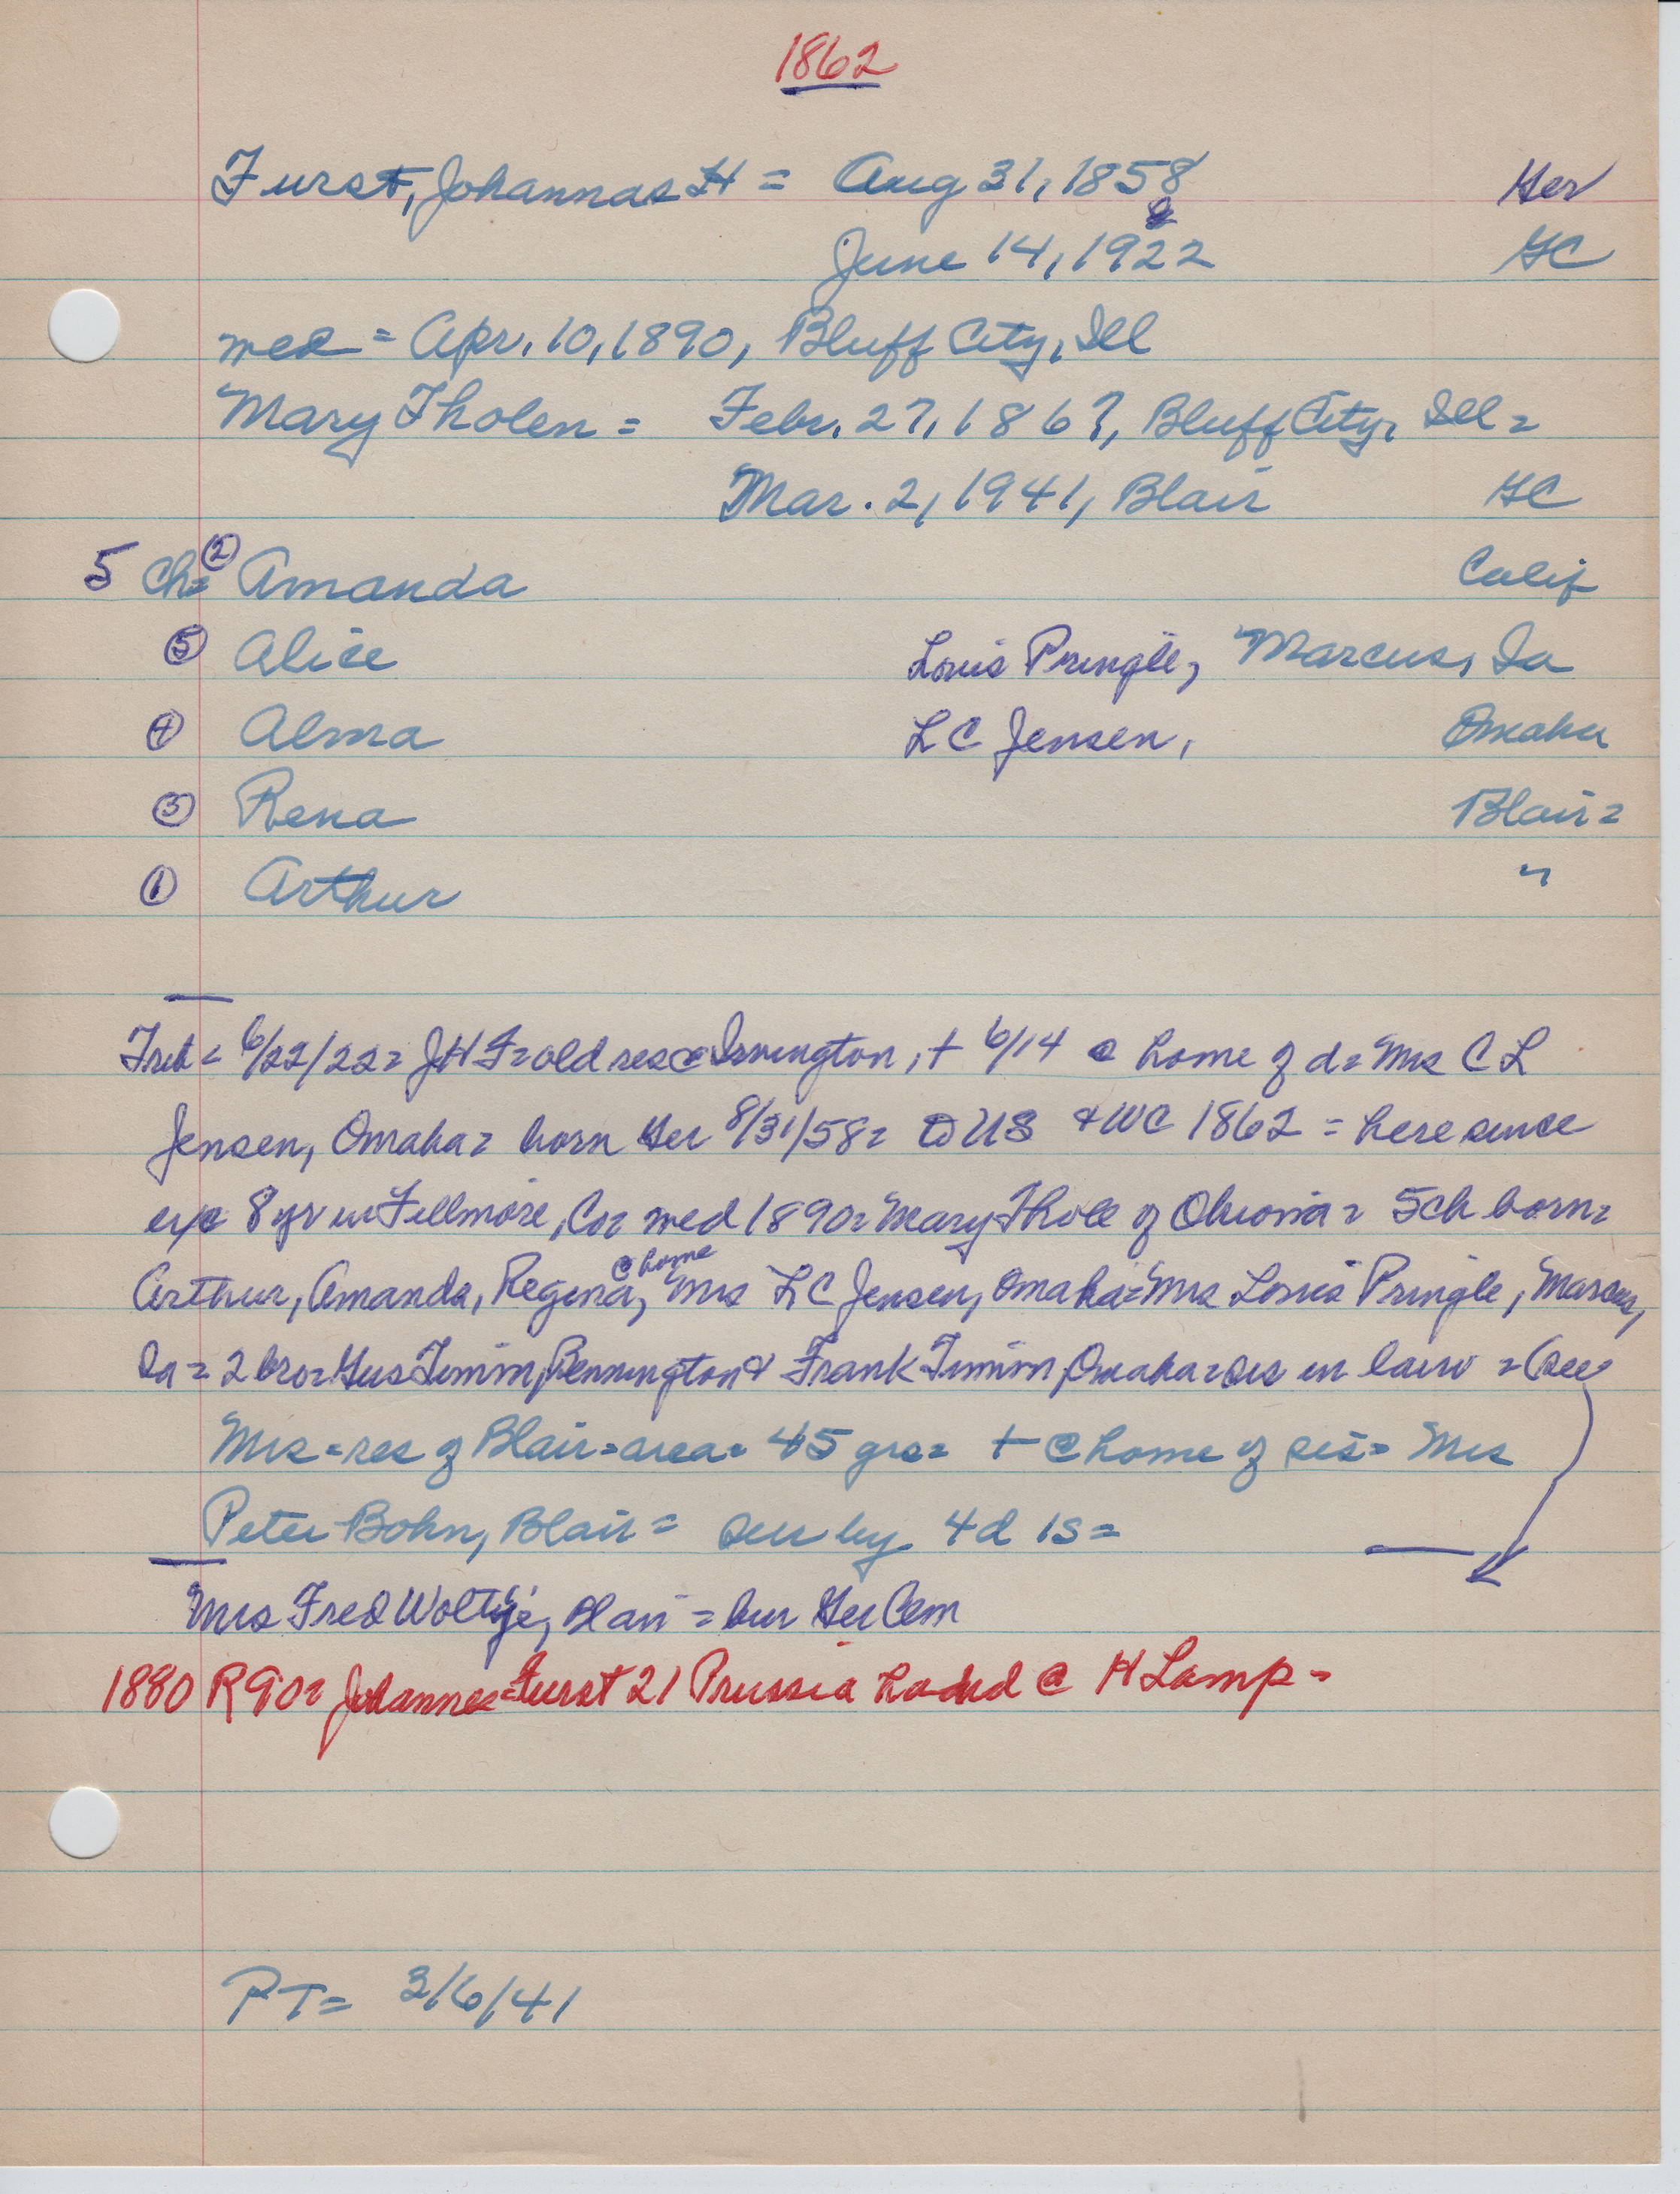 1862
Furst, Johannas H = Aug 31, 1858 Ger
June 14, 1922 GC
wed = Apr. 10, 1890, Bluff City, Ill
Mary Tholen = Febr. 27, 186?, Bluff City, Ill =
Mar. 2, 1941, Blair GC
5 ch= ② Amanda Calif
⑤ Alice Louis Pringle, Marcus, Ia
④ Alma L C Jensen, Omaha
③ Rena Blair =
① Arthur "
= 6/22/22 = JHF = old res @ Irvington, + 6/14 @ home of d = Mrs C L
Jensen, Omaha = born Ger 8/31/58 = to US & WC 1862 = here since
8 yr in Fillmore, Co = wed 1890 = Mary of = 5 ch born =
Arthur, Amanda, Regina, @ home Mrs L C Jensen, Omaha = Mrs Louis Pringle, Marcus,
Ia = 2 bro = Gus Timm, Bennington & Frank Timm, Omaha = sis in law = (see
Mrs = res of Blair = area = 45 yrs = + @ home of sis = Mrs
Peter Bohn, Blair = sur by 4 d 1 s =
Mrs Fred Woltje, Blair = bur Ger Cem
1880 R 90 = Johannes Furst 21 Prussia @ H Lamp =
PT = 3/6/41